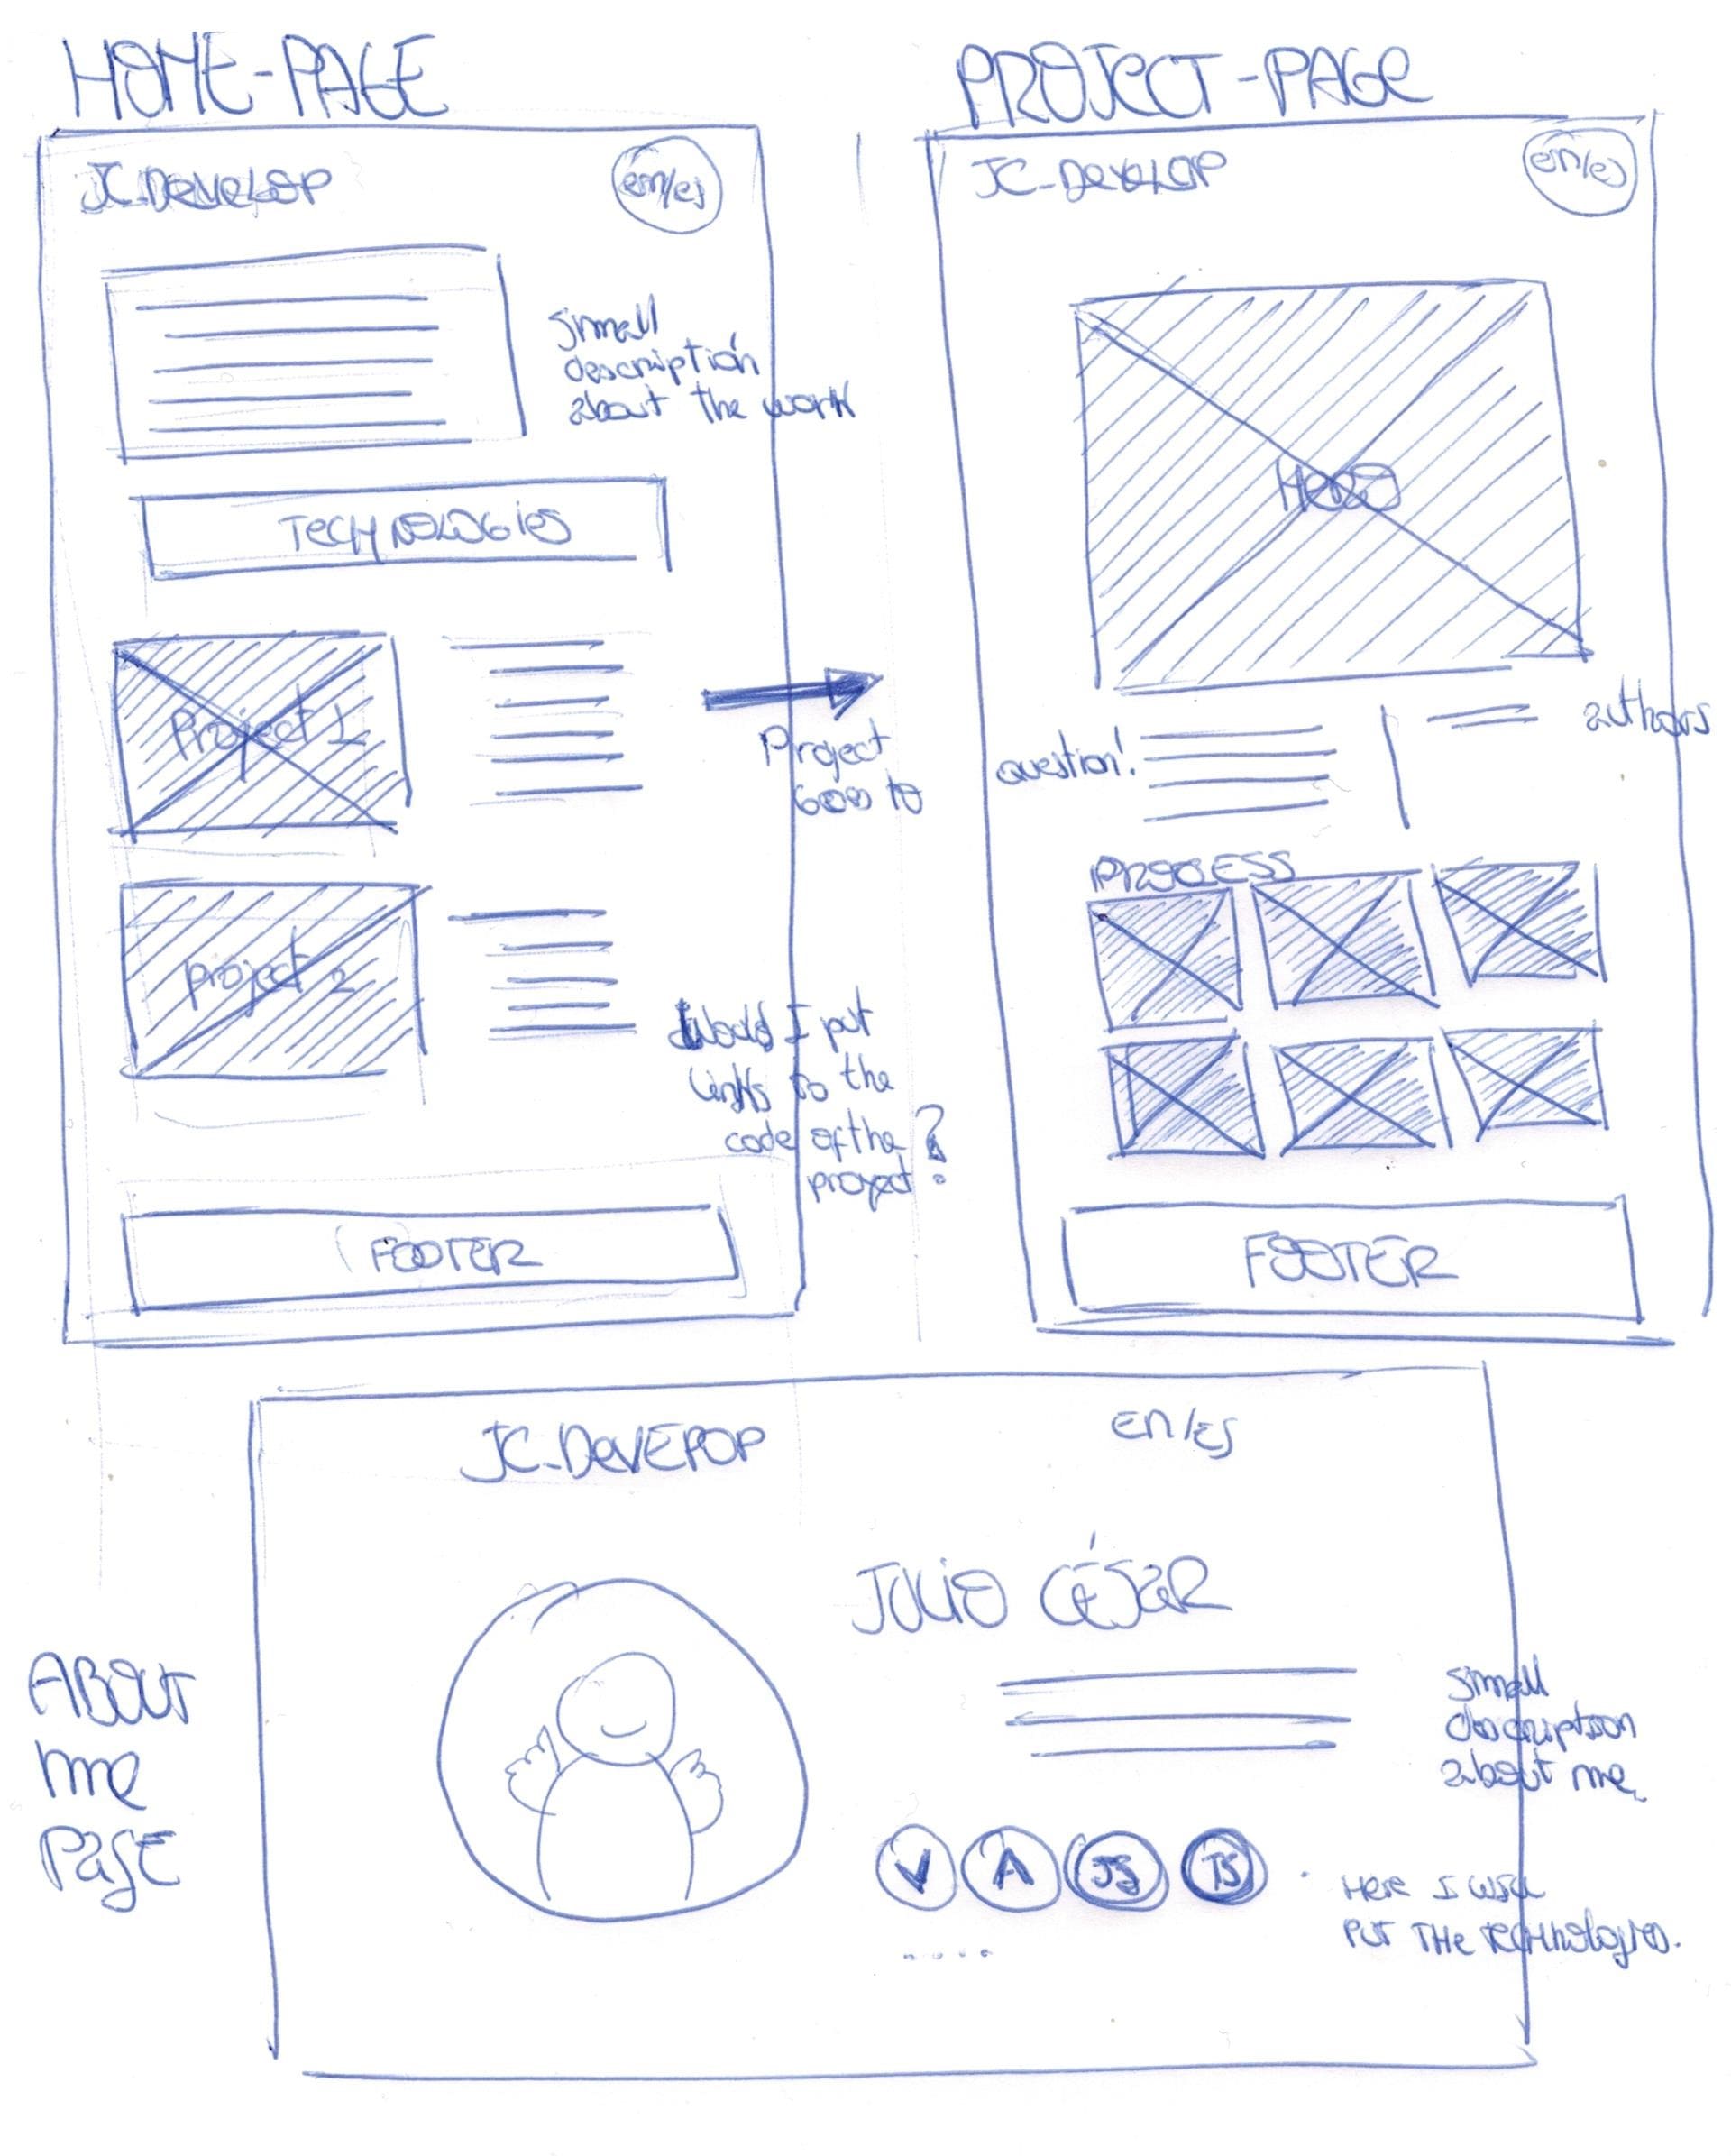 HOME-PAGE
JC_DEVELOP
en/es
small
description
about the work
TECHNOLOGIES
Project 1
Project
GOES TO
project 2
I put
links to the
code of the
project?
FOOTER
PROJECT-PAGE
JC_DEVELOP
en/es
HERO
question!
authors
PROCESS
FOOTER
ABOUT
me
PAGE
JC_DEVEPOP
EN/ES
JULIO CÉSAR
small
description
about me
V A JS TS
....
HERE I WILL
PUT THE TECHNOLOGIES.